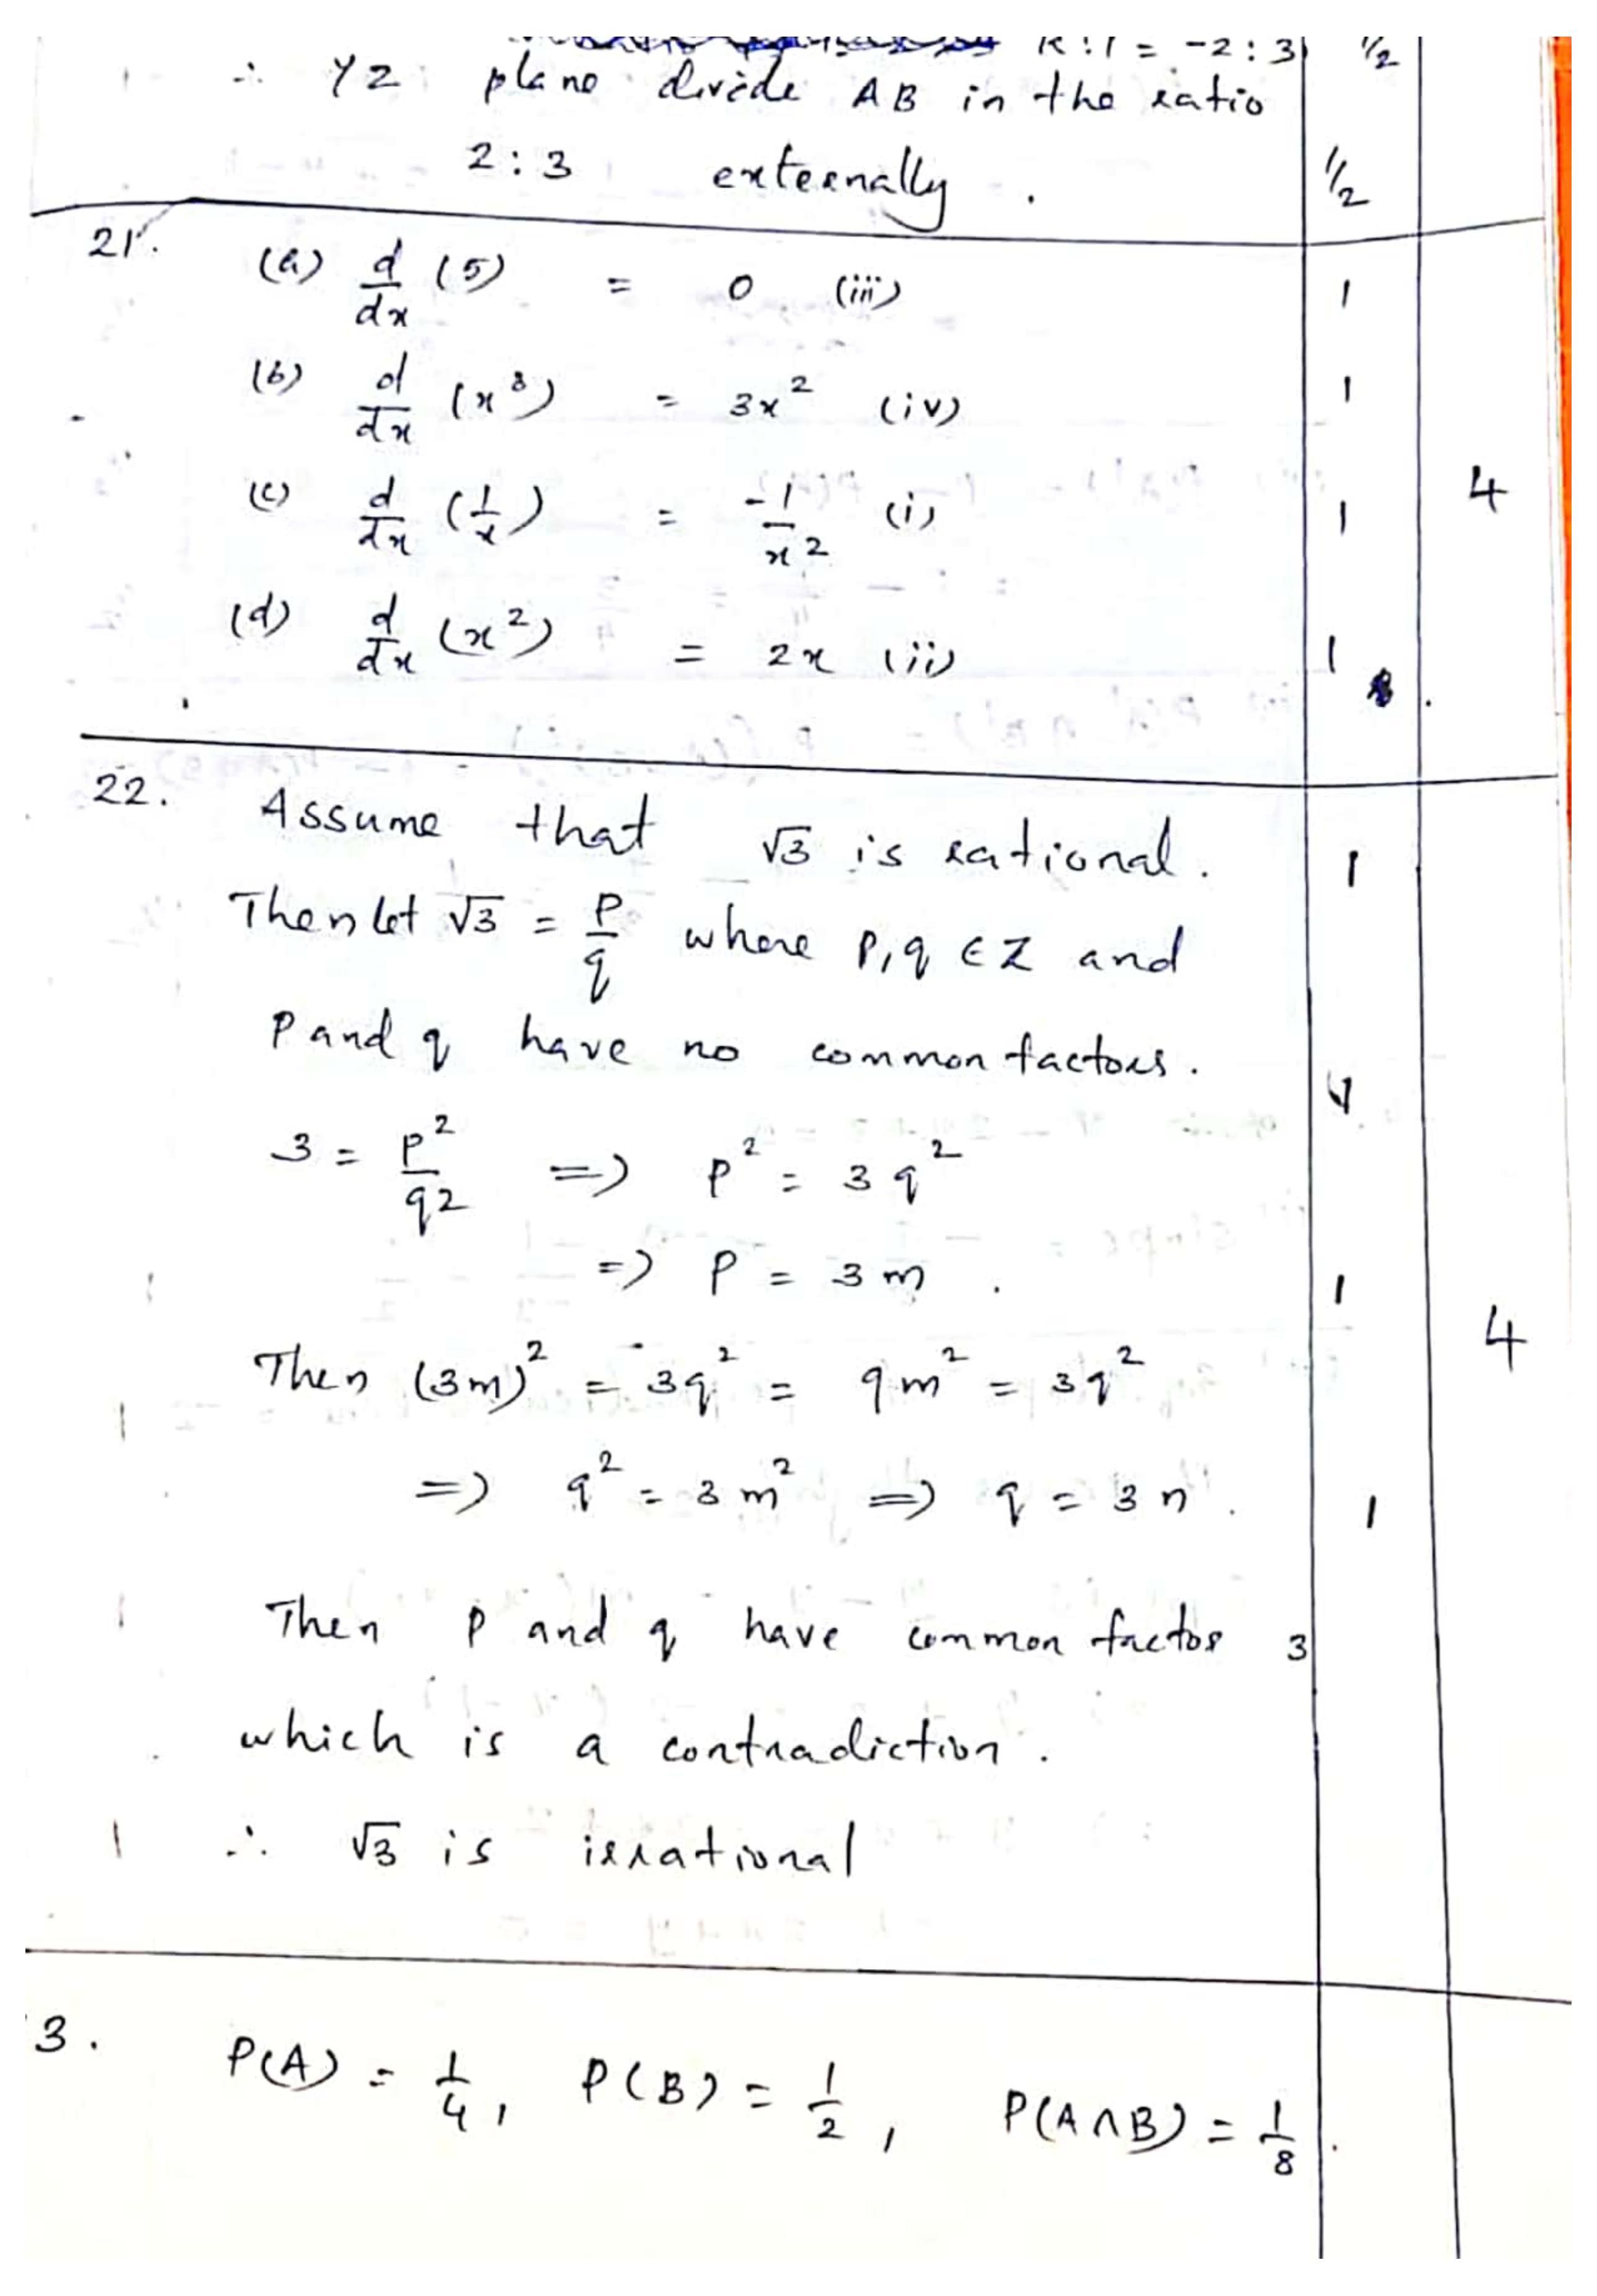 K:1 = -2:3 1/2
∴ YZ plane divide AB in the ratio
2:3 externally. 1/2
21. (a) d/dx (5) = 0 (iii) 1
(b) d/dx (x³) = 3x² (iv) 1
(c) d/dx (1/x) = -1/x² (i) 1 4
(d) d/dx (x²) = 2x (ii) 1
22. Assume that √3 is rational. 1
Then let √3 = P/q where P,q ∈ Z and
P and q have no common factors.
1
3 = p²/q2 => p² = 3q²
=> p = 3m. 1
4
Then (3m)² = 3q² = 9m² = 3q²
=> q² = 3m² => q = 3n. 1
Then p and q have common factor 3
which is a contradiction.
∴ √3 is irrational
3. P(A) = 1/4, P(B) = 1/2, P(A∩B) = 1/8.